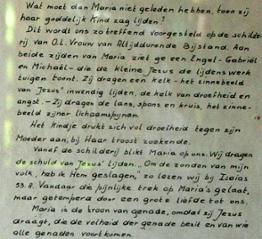 Wat moet dan Maria niet geleden hebben, toen zij
haar goddelijk Kind zag lijden!
Dit wordt ons zo treffend voorgesteld op de schilde-
rij van O.L. Vrouw van Altijddurende Bijstand. Aan
beide zijden van Maria ziet ge een Engel - Gabriël
en Michaël - die de kleine Jezus de lijdenswerk
tuigen toont. Zij dragen een kelk - het zinnebeeld
van Jezus' inwendig lijden, de kelk van droefheid en
angst. - Zij dragen de lans, spons en kruis, het zinne-
beeld zijner lichaamspijnen.
Het Kindje drukt zich vol droefheid tegen zijn
Moeder aan, bij Haar troost zoekende.
Vanaf de schilderij blikt Maria op ons. Wij dragen
de schuld van Jezus' lijden. "Om de zonden van mijn
volk, heb ik Hem geslagen," zo lezen wij bij Isaïas
53.8. Vandaar die pijnlijke trek op Maria's gelaat,
maar getemperd door een grote liefde tot ons.
Maria is de troon van genade, omdat zij Jezus
draagt, die de volheid der genade bezit en van wie
alle genaden voortkomen.